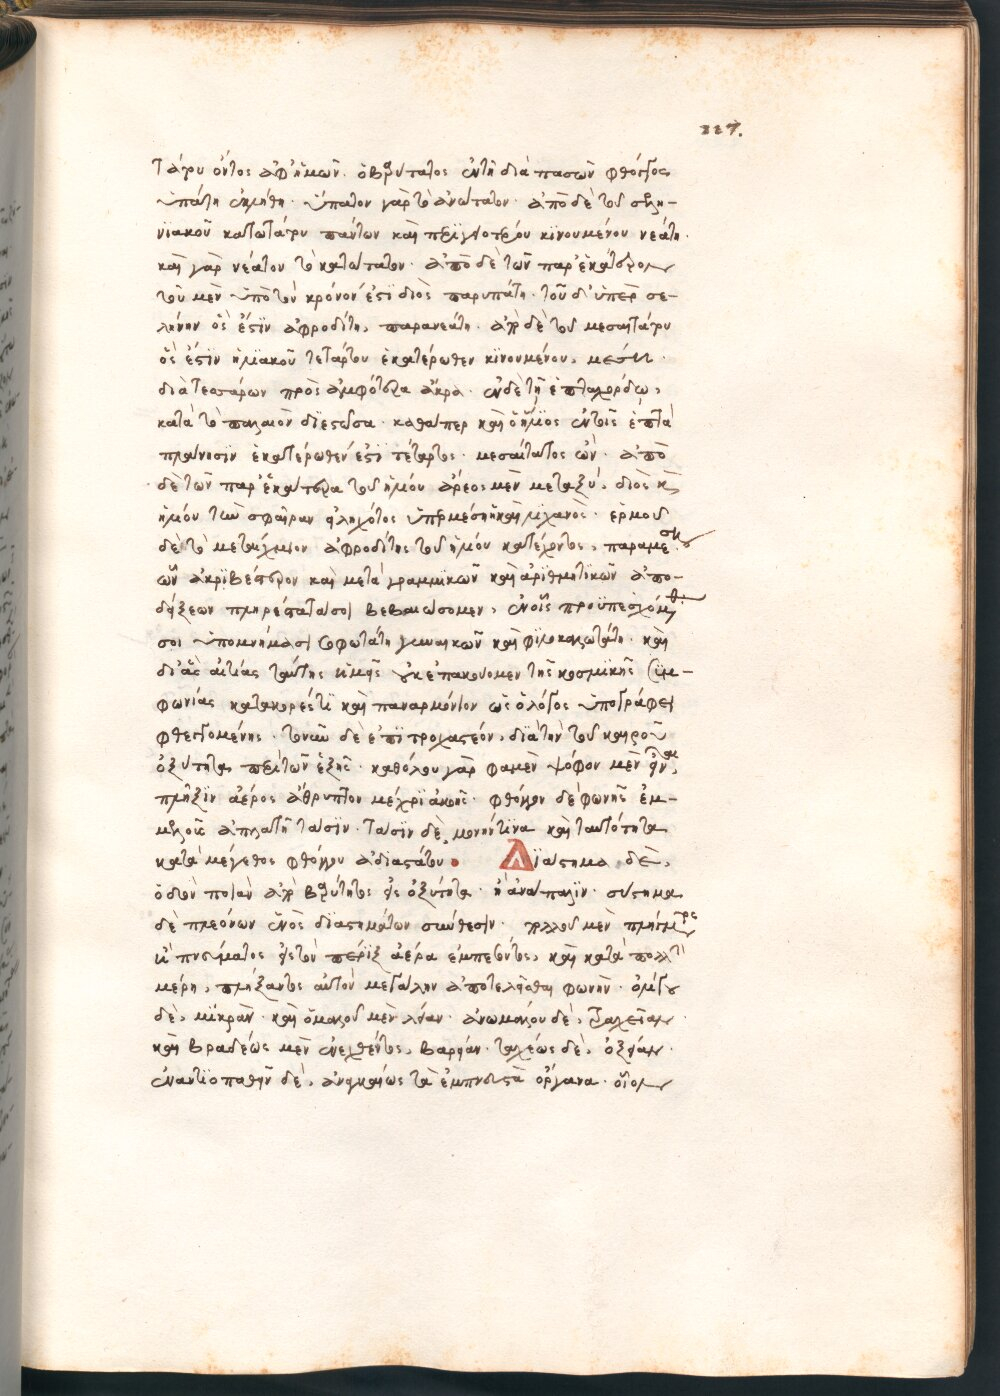 117.
τάτου ὄντος ἀφ' ἡμῶν. ὁ βαρύτατος ἐν τῆ διὰ πασῶν φθόγγος
ὑπάτη ἐκλήθη. ὕπατον γὰρ τὸ ἀνώτατον. ἀπὸ δὲ τοῦ σελη-
νιακοῦ κατωτάτου πάντων καὶ περιγειοτέρου κινουμένου νεάτη.
καὶ γὰρ νέατον τὸ κατώτατον. ἀπὸ δὲ τῶν παρ' ἑκάτερον
τοῦ μὲν ὑπὸ τὸν κρόνον ἐστι διὸς παρυπάτη. τοῦ δ' ὑπὲρ σε-
λήνην ὅς ἐστιν ἀφροδίτης, παρανεάτη. ἀπὸ δὲ τοῦ μεσαιτάτου
ὅς ἐστιν ἡλιακοῦ τετάρτου ἑκατέρωθεν κινουμένου, μέση.
διὰ τεσσάρων πρὸς ἀμφότερα ἄκρα. ἐν δὲ τῆ ἑπταχόρδω,
κατὰ τὸ παλαιὸν διεστῶσα. καθάπερ καὶ ὁ ἥλιος ἐν τοῖς ἑπτὰ
πλάνησιν ἑκατέρωθέν ἐστι τέταρτος. μεσαίτατος ὤν. ἀπὸ
δὲ τῶν παρ' ἑκάτερα τοῦ ἡλίου ἄρεος μὲν μεταξὺ, διὸς καὶ
ἡλίου τὴν σφαῖραν εἰληχότος ὑπερμέση ἡ καὶ λιχανὸς. ἑρμοῦ
δὲ τὸ μεταίχμιον ἀφροδίτης τοῦ ἡλίου κατέχοντος, παραμέση.
ὧν ἀκριβέστερον καὶ μετὰ γραμμικῶν καὶ ἀριθμητικῶν ἀπο-
δείξεων πληρέστατά σοι βεβαιώσομεν, ἐν οἷς προϋπεσχόμεθα
σοι ὑπομνήμασι σοφωτάτη γυναικῶν καὶ φιλοκαλωτάτη. καὶ
δι' ἃς αἰτίας ταύτης ἡμεῖς οὐκ ἐπακούομεν τῆς κοσμικῆς συμ-
φωνίας κατακορές τι καὶ παναρμόνιον ὡς ὁ λόγος ὑπογράφει
φθεγγομένης. τὸ νῦν δὲ ἐπιτροχαστέον, διὰ τὴν τοῦ καιροῦ
ὀξύτητα περὶ τῶν ἑξῆς. καθόλου γὰρ φαμὲν ψόφον μὲν εἶναι,
πλῆξιν ἀέρος ἄθρυπτον μέχρι ἀκοῆς. φθόγγον δὲ φωνῆς ἐμ-
μελοῦς ἀπλατῆ τάσιν. τάσιν δὲ, μονήν τινα καὶ ταυτότητα
κατὰ μέγεθος φθόγγου ἀδιαστάτου. Διάστημα δὲ,
ὁδὸν ποιὰν ἀπὸ βαρύτητος εἰς ὀξύτητα. ἢ ἀνάπαλιν. σύστημα
δὲ πλεόνων ἑνὸς διαστημάτων σύνθεσιν. πολλοῦ μὲν πλήγματος
ἢ πνεύματος εἰς τὸν πέριξ ἀέρα ἐμπεσόντος, καὶ κατὰ πολλὰ
μέρη, πλήξαντος αὐτὸν μεγάλην ἀποτελεῖσθαι φωνὴν. ὀλίγου
δὲ, μικρὰν. καὶ ὁμαλοῦ μὲν λείαν. ἀνωμάλου δὲ, τραχεῖαν.
καὶ βραδέως μὲν ἐνεχθέντος, βαρεῖαν. ταχέως δὲ, ὀξεῖαν.
ἐναντιοπαθεῖν δὲ, ἀναγκαίως τὰ ἐμπνευστὰ ὄργανα. οἷον